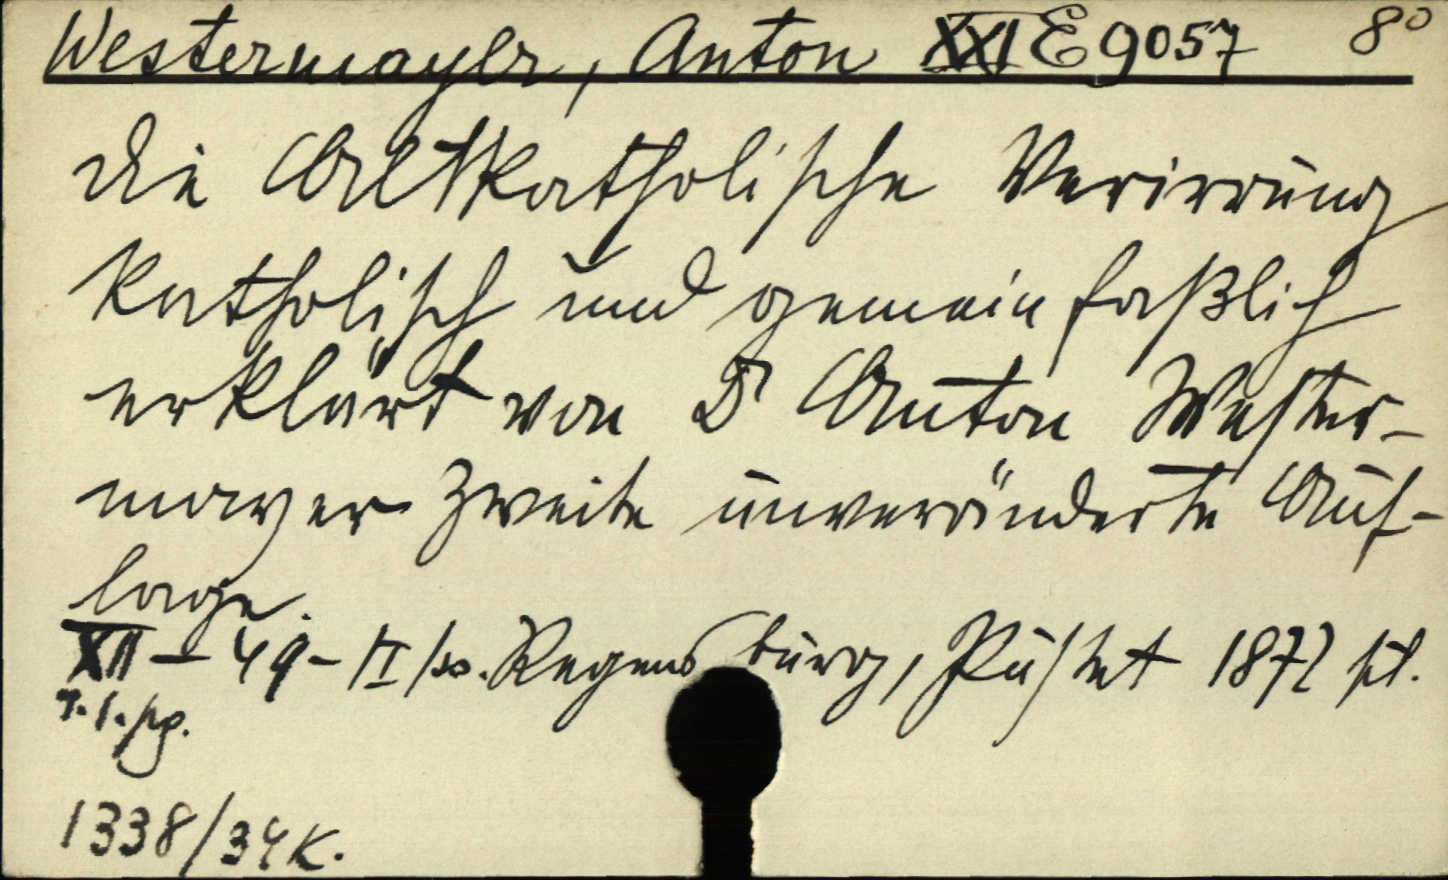 Westermayer, Anton XXI E 9057 8°
Die Altkatholische Verirrung
katholisch und gemein faßlich
erklärt von Dr Anton Wester-
mayer Zweite unveränderte Auf-
lage.
XII – 49 – II Regensburg, Pustet 1872
1338/34K.